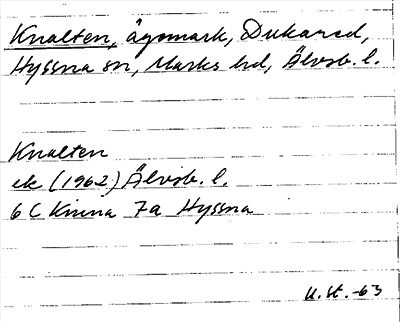 Knalten, ägomark, Dukared,
Hyssna sn, Marks hd, Älvsb. l.
Knalten
ek (1962) Älvsb. l.
6 C Kinna 7a Hyssna
U.H. -63